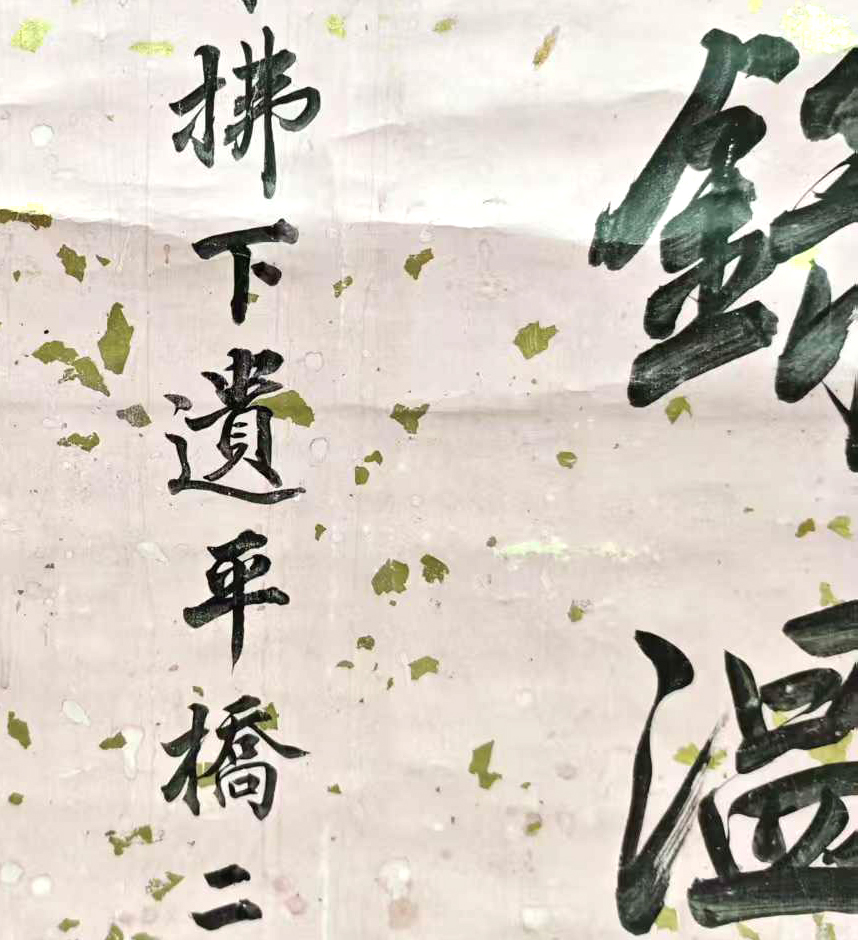 温
拂下遺平橋二